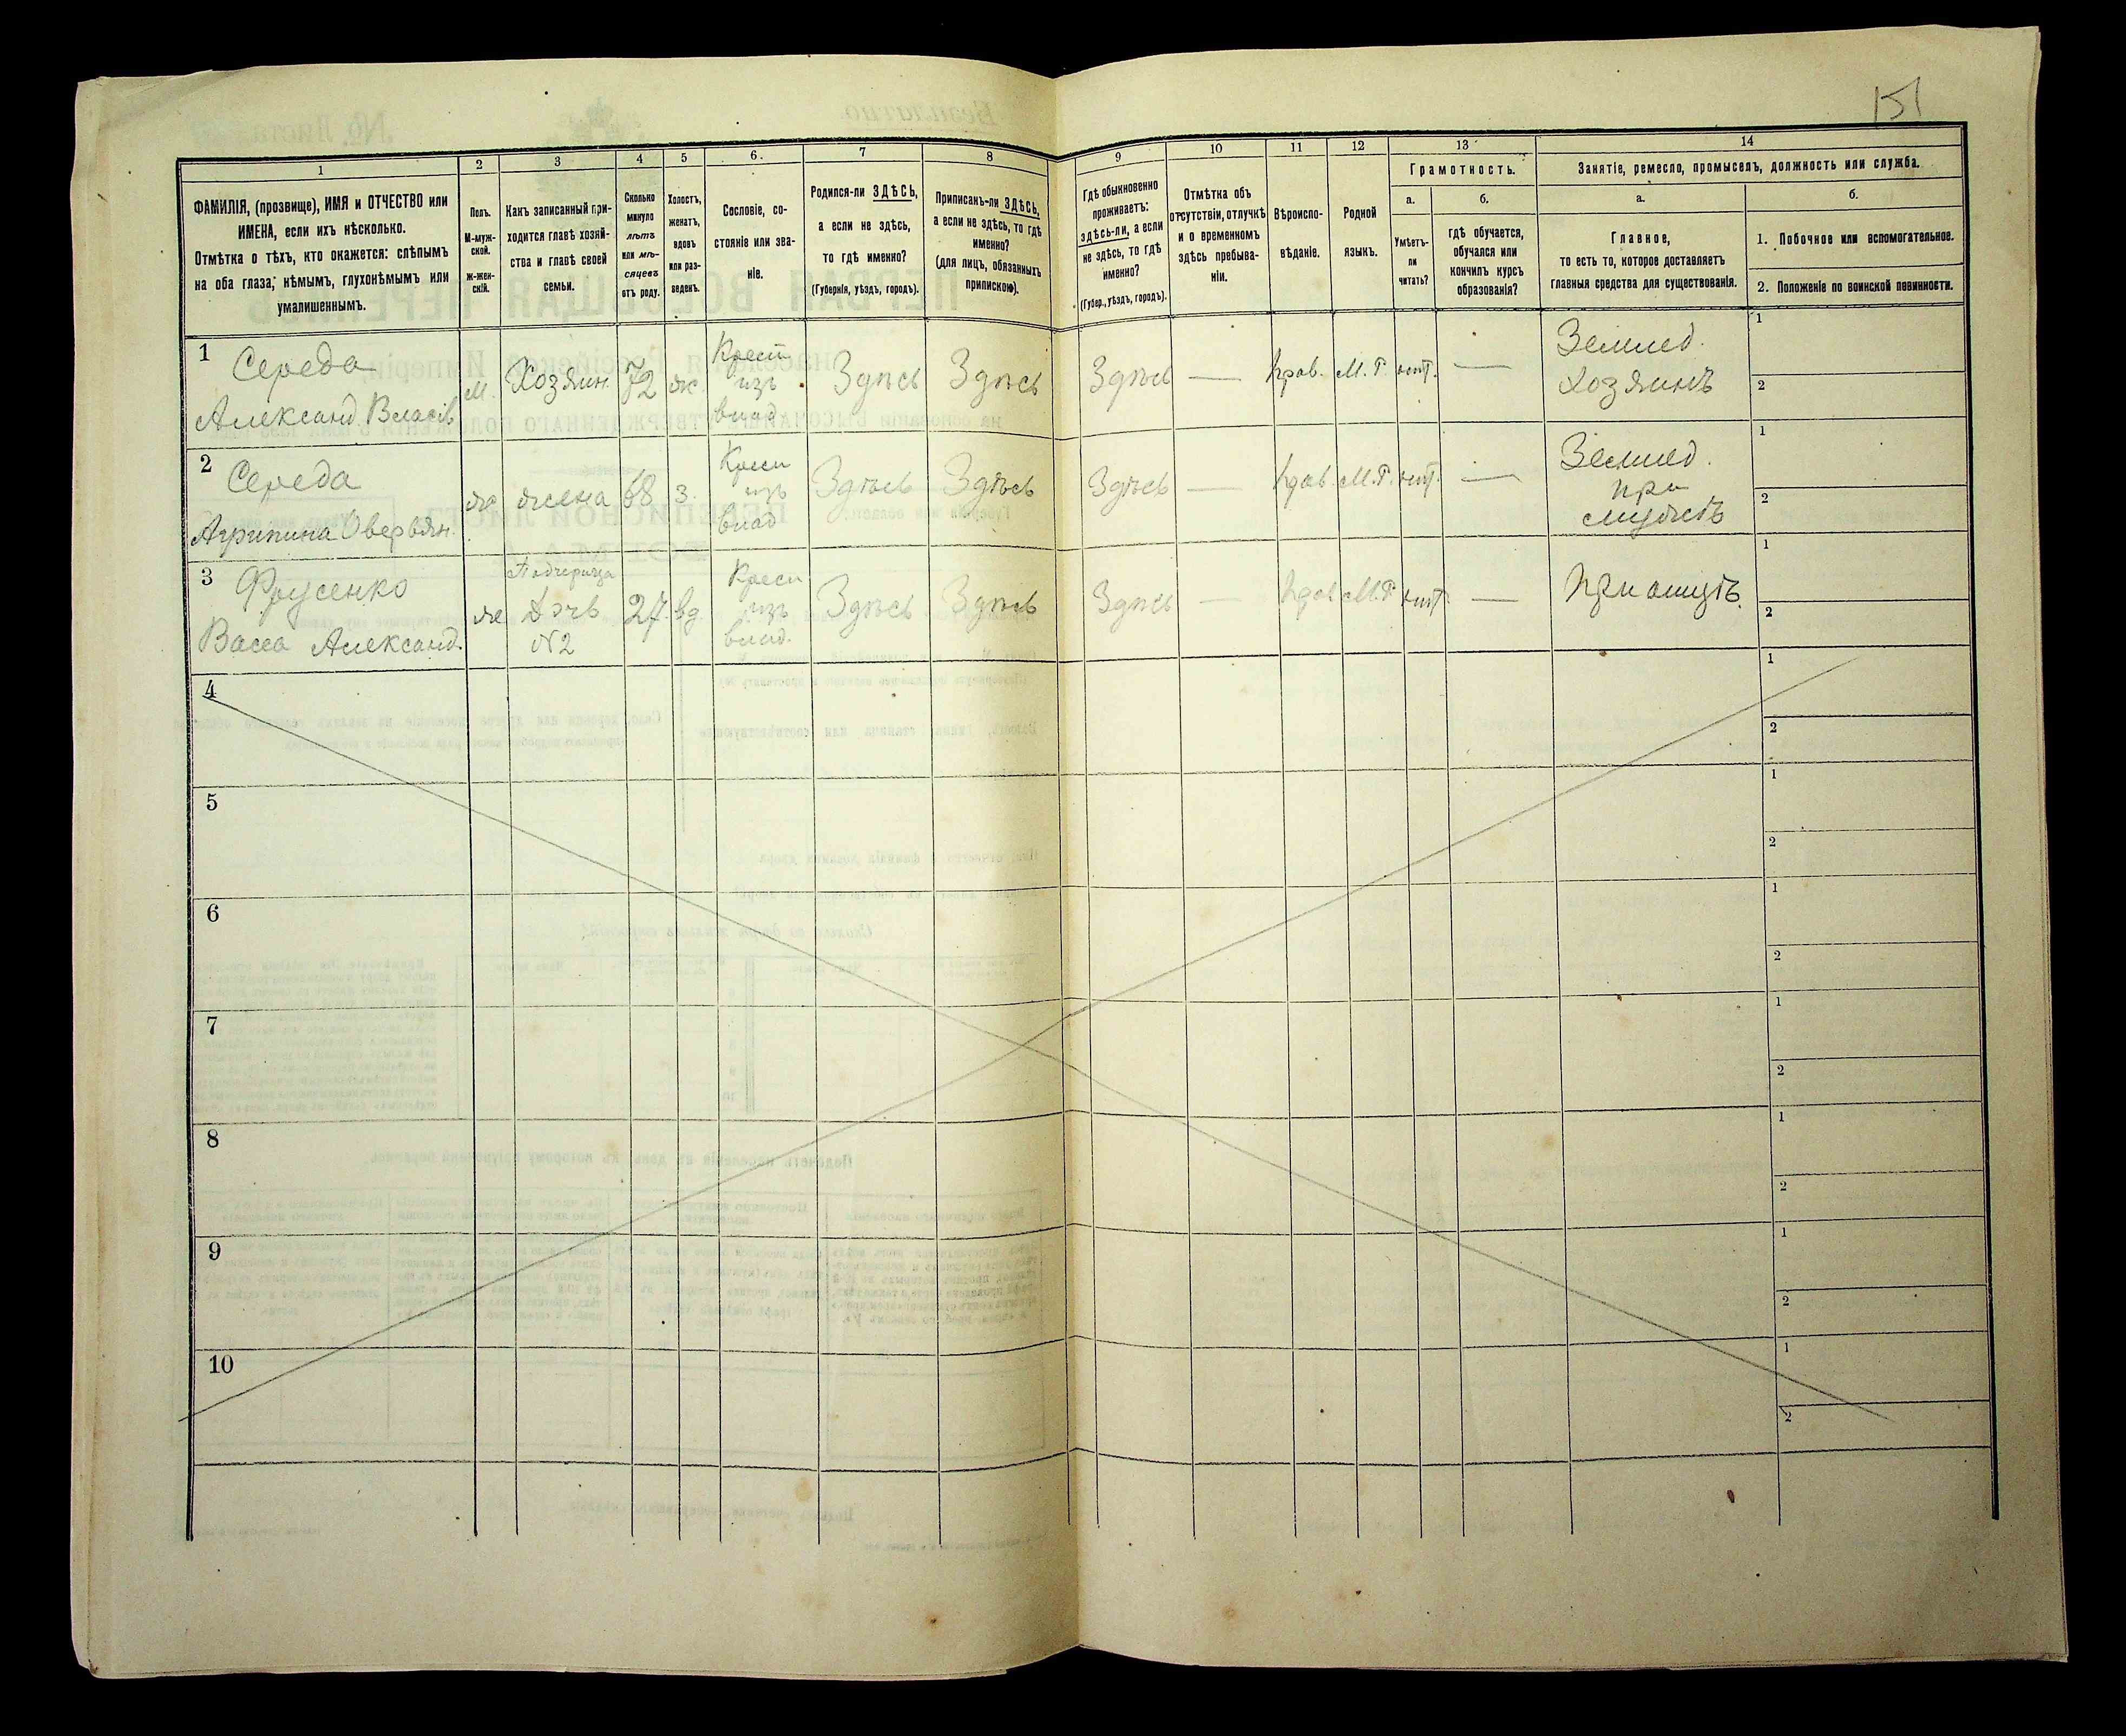 151
1
2
3
4
5
6.
7
8
9
10
11
12
13
14
ФАМИЛІЯ, (прозвище), ИМЯ и ОТЧЕСТВО или
ИМЕНА, если ихъ нѣсколько.
Отмѣтка о тѣхъ, кто окажется: слѣпымъ
на оба глаза; нѣмымъ, глухонѣмымъ или
умалишеннымъ.
Полъ.
М-муж-
ской.
Ж-жен-
скій.
Какъ записанный при-
ходится главѣ хозяй-
ства и главѣ своей
семьи.
Сколько
минуло
лѣтъ
или мѣ-
сяцевъ
отъ роду.
Холостъ,
женатъ,
вдовъ
или раз-
веденъ.
Сословіе, со-
стояніе или зва-
ніе.
Родился-ли ЗДѢСЬ,
а если не здѣсь,
то гдѣ именно?
(Губернія, уѣздъ, городъ).
Приписанъ-ли ЗДѢСЬ,
а если не здѣсь, то гдѣ
именно?
(для лицъ, обязанныхъ
припискою).
Гдѣ обыкновенно
проживаетъ:
здѣсь-ли, а если
не здѣсь, то гдѣ
именно?
(Губер., уѣздъ, городъ).
Отмѣтка объ
отсутствіи, отлучкѣ
и о временномъ
здѣсь пребыва-
ніи.
Вѣроиспо-
вѣданіе.
Родной
языкъ.
Грамотность.
а.
Умѣетъ-
ли
читать?
б.
гдѣ обучается,
обучался или
кончилъ курсъ
образованія?
Занятіе, ремесло, промыселъ, должность или служба.
а.
Главное,
то есть то, которое доставляетъ
главныя средства для существованія.
б.
1. Побочное или вспомогательное.
2. Положеніе по воинской повинности.
1
Середа
Александ. Власів
м.
Хозяин.
72
ж.
Крест
изъ
влад.
Здѣсь
Здѣсь
Здѣсь
—
прав.
М. Р.
нѣт.
—
Землед.
хозяинъ
1
2
2
Середа
Агрипина Оверьян.
ж
жена
68
з.
Кресн
изъ
влад
Здѣсь
Здѣсь
Здѣсь
—
прав.
М. Р.
нѣт.
—
Землед.
при
1
2
3
Фрусенко
Васса Александ.
же
Падчерица
Дочь
№2
27.
вд.
Кресн
изъ
влад.
Здѣсь
Здѣсь
Здѣсь
—
прав
М. Р.
нѣт.
—
при отцѣ.
1
2
4
1
2
5
1
2
6
1
2
7
1
2
8
1
2
9
1
2
10
1
2